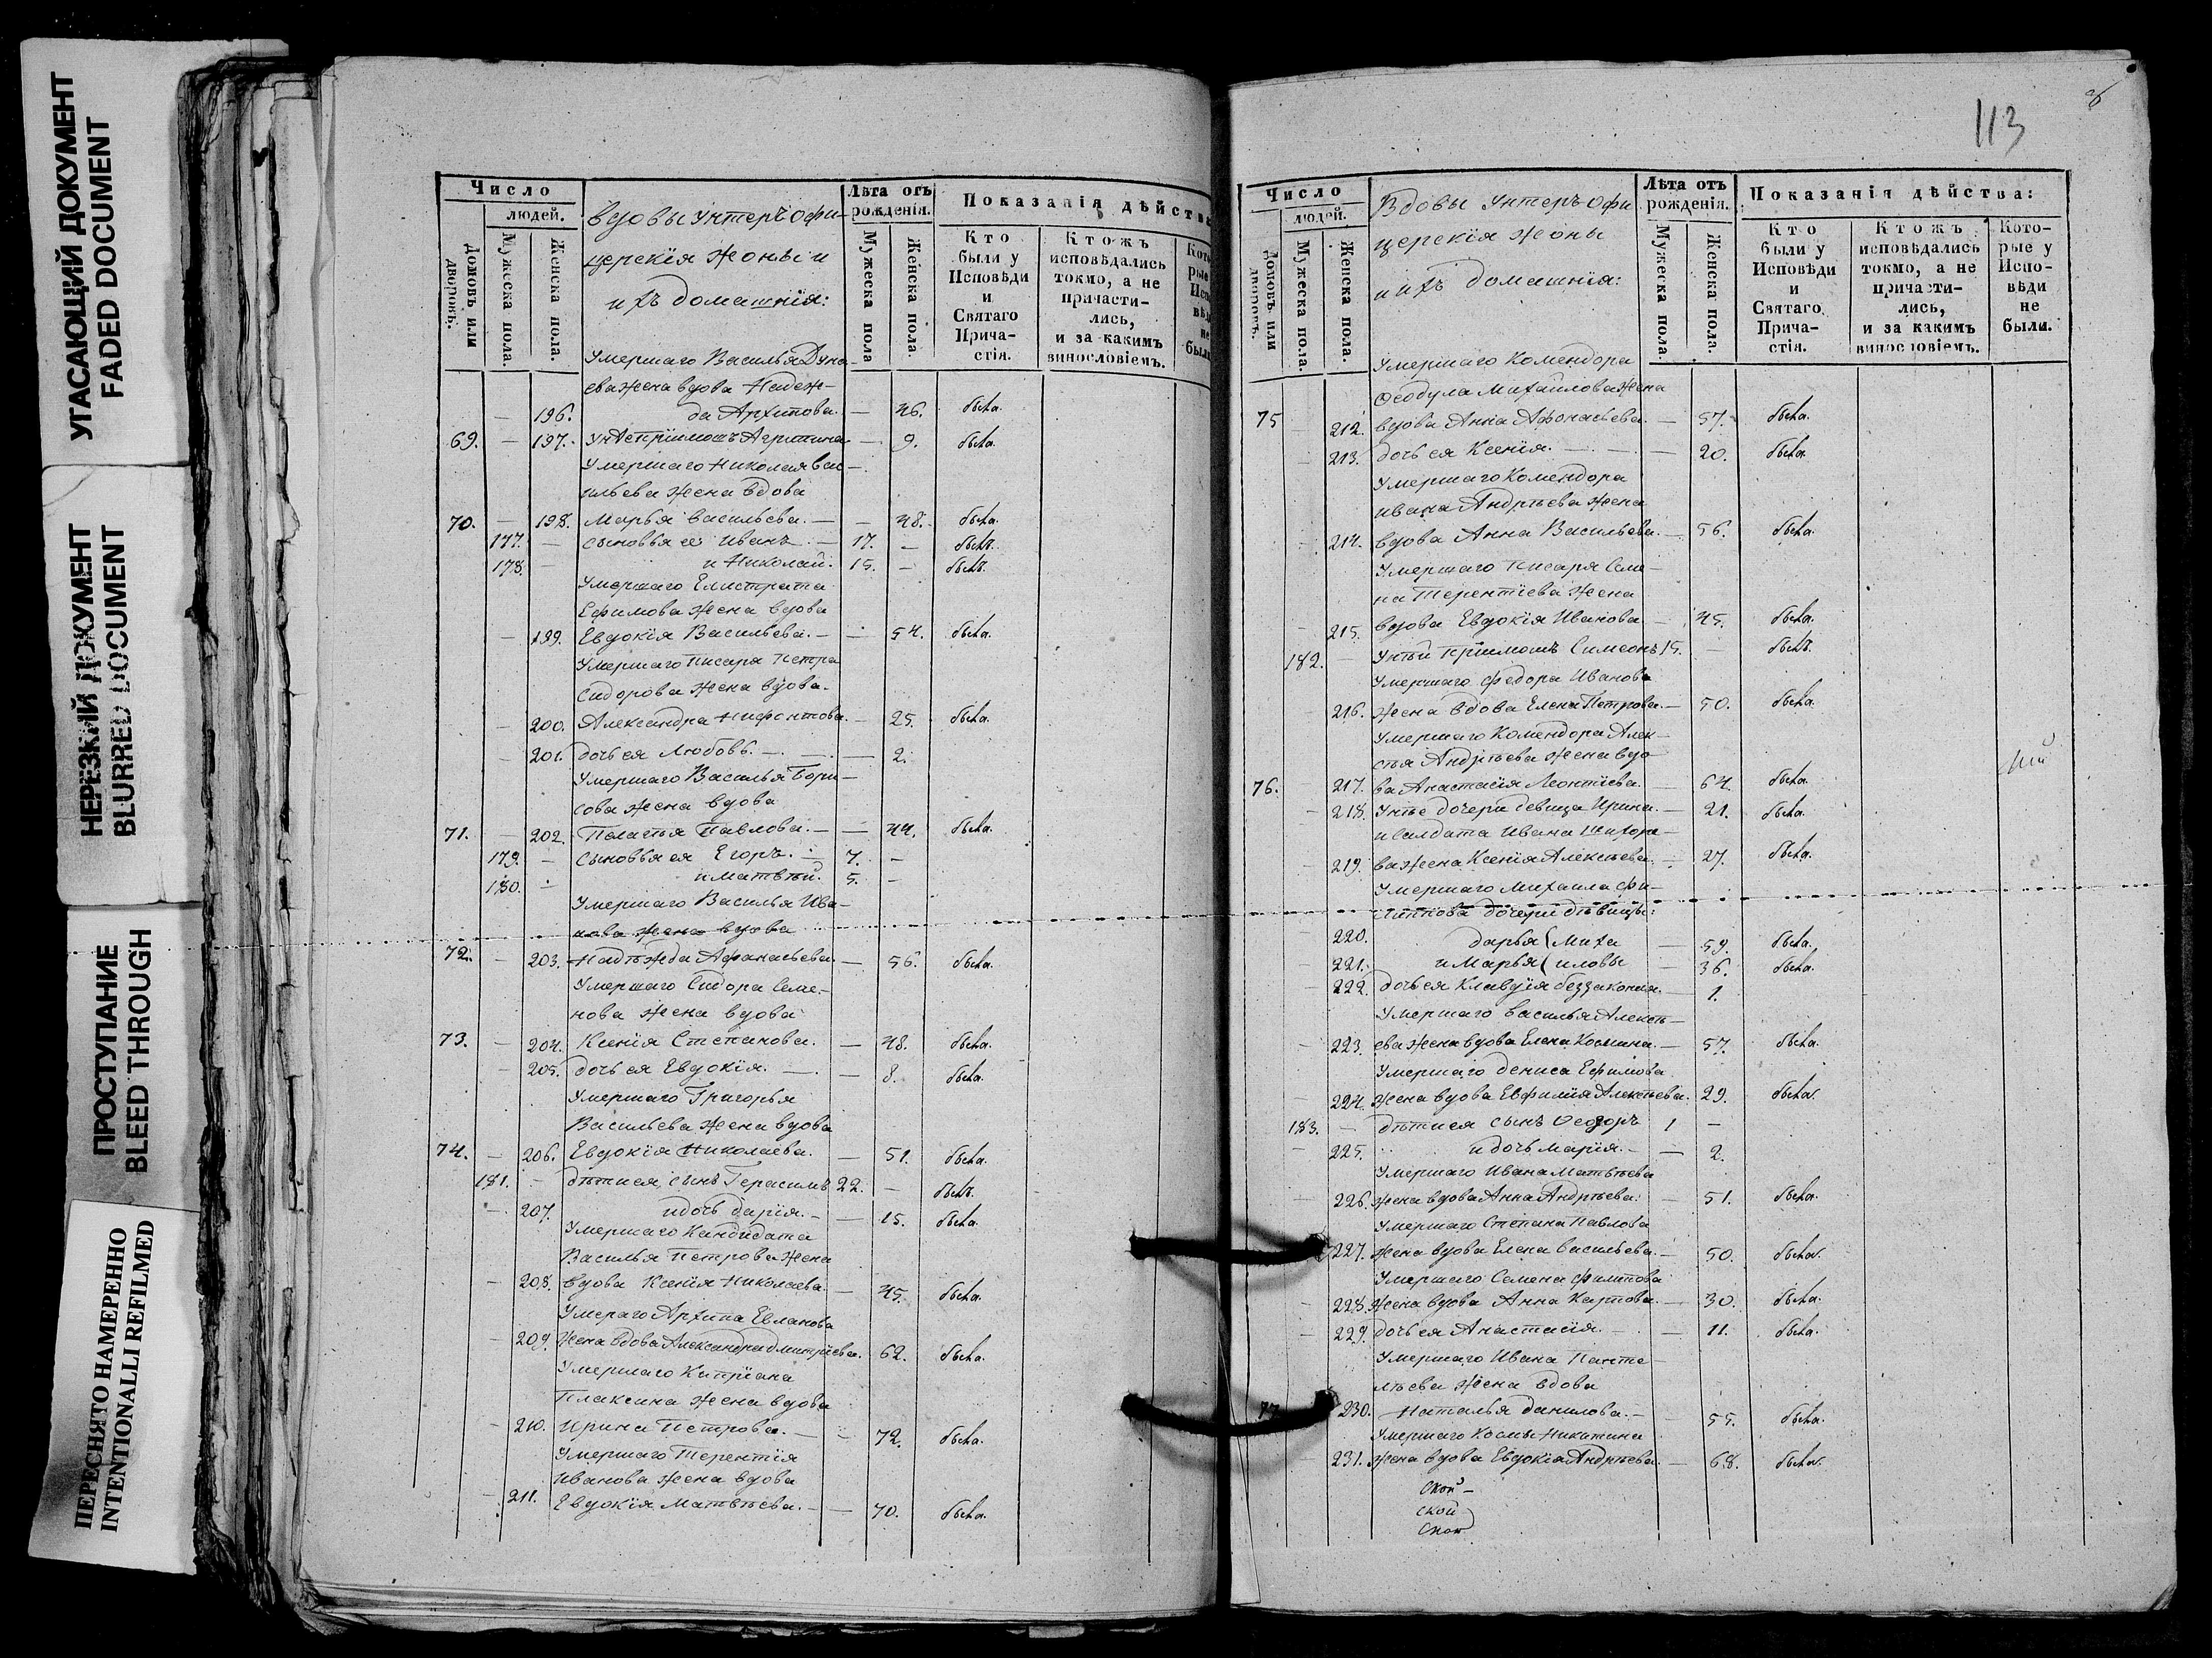 УГАСАЮЩИЙ ДОКУМЕНТ
FADED DOCUMENT
НЕРЕЗКИЙ ДОКУМЕНТ
BLURRED DOCUMENT
ПРОСТУПАНИЕ
BLEED THROUGH
ПЕРЕСНЯТО НАМЕРЕННО
INTENTIONALLI REFILMED
Число
людей.
Домовъ или дворовъ.
Мужеска пола.
Женска пола.
Вдовы унтеръ офи-
церскія жоны и
ихъ домашнія:
Лѣта отъ рожденія.
Мужеска пола
Женска пола.
Показанія дѣйства
Кто были у Исповѣди и Святаго Прича- стія.
Ктожъ исповѣдались токмо, а не причасти- лись, и за какимъ винословіемъ.
Умершаго Василья Дуна-
ева жена вдова Надеж-
— 196. да Архипова. — 46. была.
69. — 197. Агрипина — 9. была.
Умершаго Николая Вас-
ильева жена вдова
70. — 198. Марья Васильева. — 48. была.
177. — сыновья ее Иванъ — 17. — былъ.
178. — и Николай. 15. — былъ.
Умершаго Елистрата
Ефимова жена вдова
— 199. Евдокія Васильева. — 54. была.
Умершаго писаря Петра
Сидорова жена вдова.
— 200. Александра Нифонтова. — 25. была.
— 201. дочь ея Любовь. — 2.
Умершаго Василья Бори-
сова жена вдова
71. — 202. Пелагъя Павлова. — 44. была.
179. — сыновья ея Егоръ. 7. —
180. — и Матвѣй. 5. —
Умершаго Василья Ива-
нова жена вдова
72. — 203. Надѣжда Афанасьева. — 56. была.
Умершаго Сидора Семе-
нова жена вдова
73. — 204. Ксенія Степанова. — 48. была.
— 205. дочь ея Евдокія. — 8. была.
Умершаго Григорья
Васильева жена вдова
74. — 206. Евдокія Николаева. — 51. была.
181. — дѣти ея, сынъ Герасимъ 22. — былъ.
— 207. и дочь Дарія. — 15. была.
Умершаго Кандидата
Василья Петрова жена
— 208. вдова Ксенія Николаева. — 45. была.
Умераго Архипа Евланова
— 209. жена вдова Александра Дмитріева. 62. была.
Умершаго Кипріана
Плаксина жена вдова
— 210. Ирина Петрова. — 72. была.
Умершаго Терентія
Иванова жена вдова
— 211. Евдокія Матвѣева. — 70. была.
113
Число
людей.
Домовъ или дворовъ.
Мужеска пола.
Женска пола.
Вдовы унтеръ офи
церскія жоны
и ихъ домашнія:
Лѣта отъ рожденія.
Мужеска пола.
Женска пола.
Показанія дѣйства:
Кто были у Исповѣди и Святаго Прича- стія.
Ктожъ исповѣдались токмо, а не причасти- лись, и за какимъ винословіемъ.
Кото- рые у Испо- вѣди не были.
Умершаго Комендора
Ѳеодула Михайлова жена
75 — 212. вдова Анна Афонасьева. — 57. была.
— 213. дочь ея Ксенія. — 20. была.
Умершаго Комендора
Ивана Андрѣева жена
— 214. вдова Анна Васильева. — 56. была.
Умершаго писаря Семе-
на Терентіева жена
— 215. вдова Евдокія Иванова — 45. была.
182. — Симеонъ 15. — былъ.
Умершаго Федора Иванова
— 216. жена вдова Елена Петрова. — 50. была.
Умершаго Комендора Алек-
сѣя Андрѣева жена вдо-
76. — 217. ва Анастасія Леонтіева. — 64. была.
— 218. дочери девица Ирина. — 21. была.
и Салдата Ивана
— 219. ва жена Ксенія Алексѣева. — 27. была.
Умершаго Михаила Фи-
липпова дочери дѣвицы:
220. Дарья (Миха — 59. была.
— 221. и Марья (иловы — 36. была.
— 222. дочь ея Клавдія беззаконная. — 1.
Умершаго Василья Алексѣ-
— 223. ева жена вдова Елена Космина. — 57. была.
Умершаго Дениса Ефимова
— 224. жена вдова Евфимія Алексѣева. 29. была.
183. — дѣти ея сынъ Ѳеодоръ 1 —
— 225. и дочь Марія. — 2.
Умершаго Ивана Матвѣева
— 226. жена вдова Анна Андрѣева. — 51. была.
Умершаго Степана Павлова
227. жена вдова Елена Васильева. — 50. была.
Умершаго Семена Филипова
— 228. жена вдова Анна Карпова. — 30. была.
— 229. дочь ея Анастасія. — 11. была.
Умершаго Ивана Панте-
лѣева жена вдова
77 230. Наталья Данилова. — 55. была.
Умершаго Космы Никитина
— 231. жена вдова Евдокія Андрѣева. — 68. была.
Ской —
ской